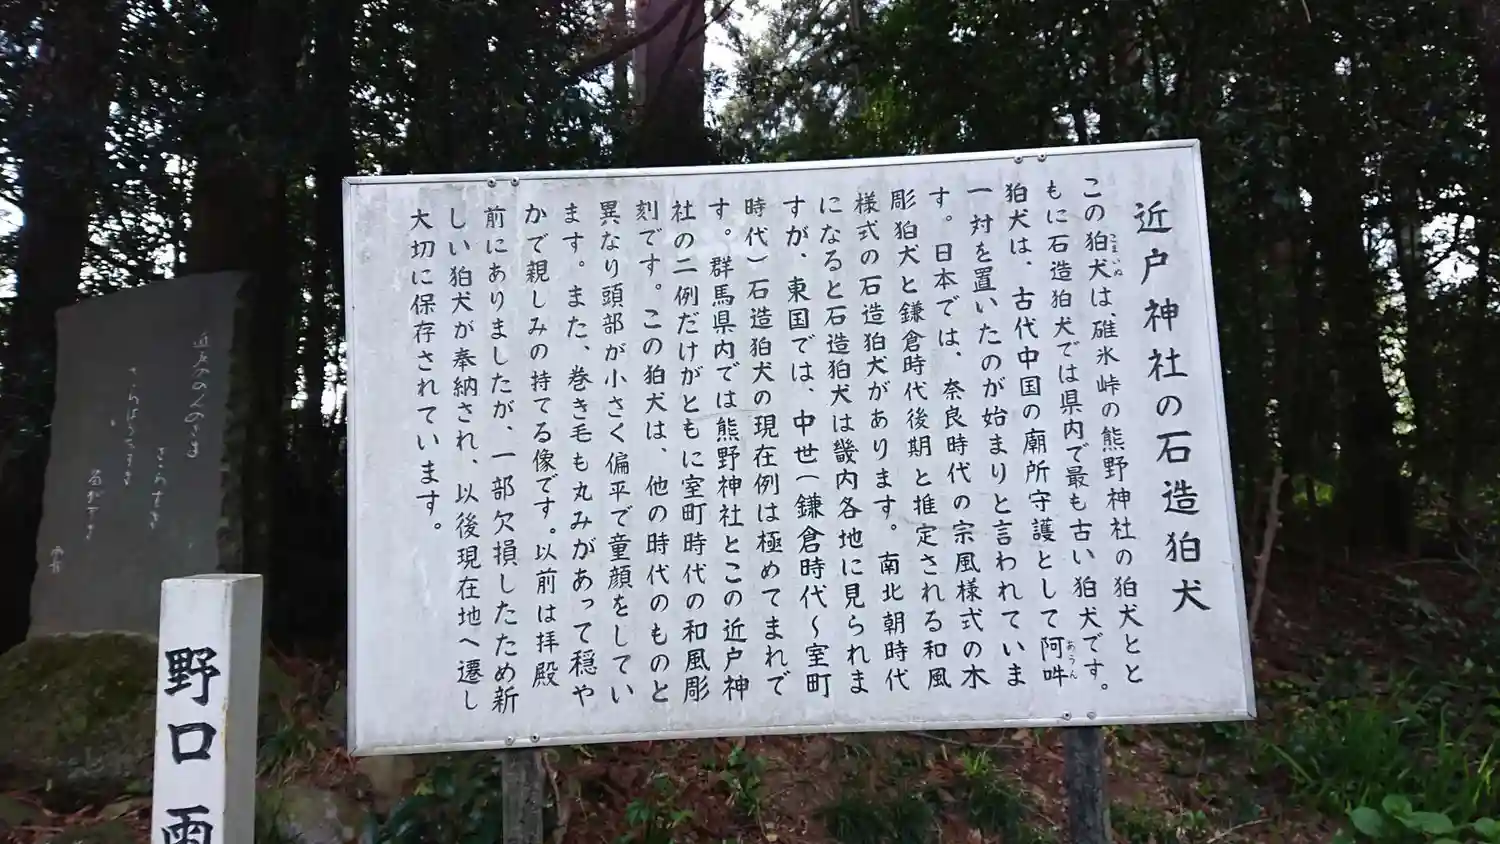 近戸神社の石造狛犬
この狛犬は、碓氷峠の熊野神社の狛犬とと
こまいぬ
もに石造狛犬では県内で最も古い狛犬です。
狛犬は、古代中国の廟所守護として阿吽
あうん
一対を置いたのが始まりと言われていま
す。日本では、奈良時代の宗風様式の木
彫狛犬と鎌倉時代後期と推定される和風
様式の石造狛犬があります。南北朝時代
になると石造狛犬は畿内各地に見られま
すが、東国では、中世(鎌倉時代〜室町
時代)石造狛犬の現在例は極めてまれで
す。群馬県内では熊野神社とこの近戸神
社の二例だけがともに室町時代の和風彫
刻です。この狛犬は、他の時代のものと
異なり頭部が小さく偏平で童顔をしてい
ます。また、巻き毛も丸みがあって穏や
かで親しみの持てる像です。以前は拝殿
前にありましたが、一部欠損したため新
しい狛犬が奉納され、以後現在地へ遷し
大切に保存されています。
野口雨